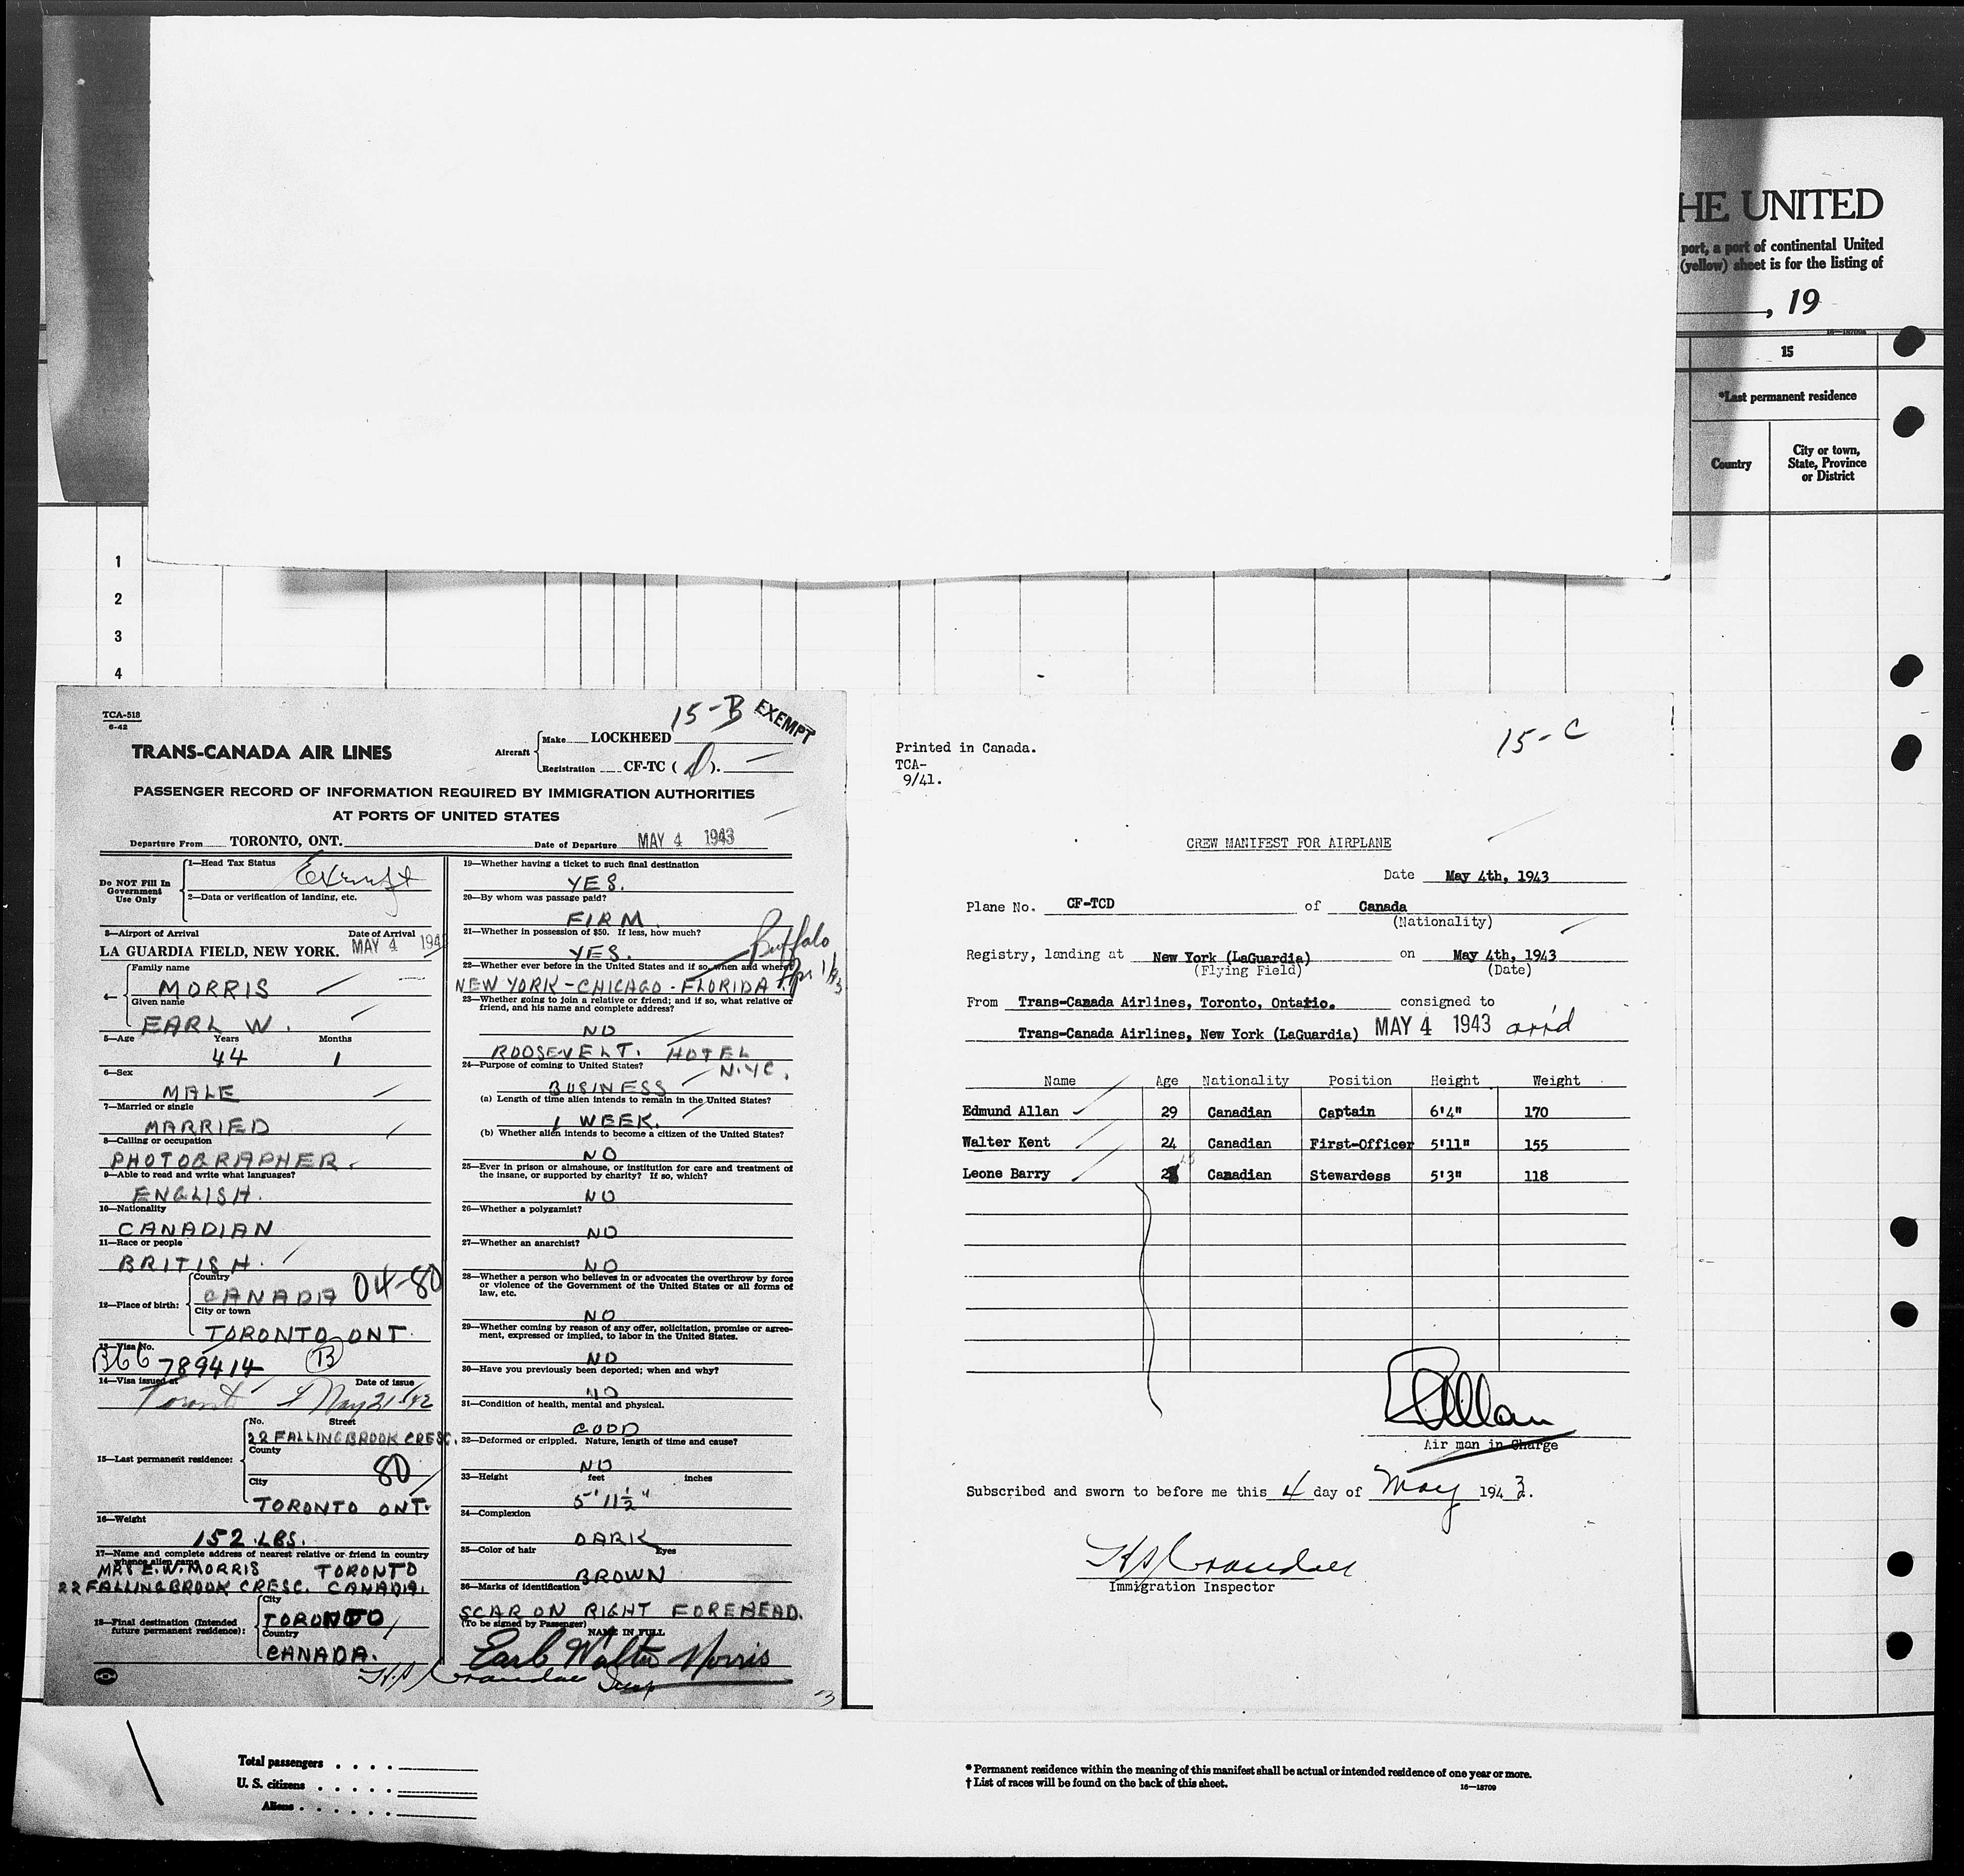 HE UNITED
port, a port of continental United
(yellow) sheet is for the listing of
, 19
15
*Last permanent residence
Country
City or town,
State, Province
or District
1
2
3
4
TCA-518
6-42
15-B
EXEMPT
TRANS-CANADA AIR LINES
Aircraft
Make LOCKHEED
Registration CF-TC (D).
PASSENGER RECORD OF INFORMATION REQUIRED BY IMMIGRATION AUTHORITIES
AT PORTS OF UNITED STATES
Departure From TORONTO, ONT.
Date of Departure MAY 4 1943
Do NOT Fill In
Government
Use Only
1—Head Tax Status
Exempt
2—Data or verification of landing, etc.
3—Airport of Arrival
Date of Arrival
LA GUARDIA FIELD, NEW YORK. MAY 4 194
4—
Family name
MORRIS
Given name
EARL W.
5—Age
Years
Months
44
1
6—Sex
MALE
7—Married or single
MARRIED
8—Calling or occupation
PHOTOGRAPHER.
9—Able to read and write what languages?
ENGLISH.
10—Nationality
CANADIAN
11—Race or people
BRITISH.
12—Place of birth:
Country
CANADA 04-80
City or town
TORONTO ONT.
13—Visa No.
B66 789414 B
14—Visa issued at
Date of issue
Toronto May 21/42
15—Last permanent residence:
No.
Street
22 FALLINGBROOK CRESC.
County
80
City
TORONTO ONT.
16—Weight
152 LBS.
17—Name and complete address of nearest relative or friend in country
whence alien came
MRS E.W. MORRIS TORONTO
22 FALLINGBROOK CRESC. CANADA.
18—Final destination (Intended
future permanent residence):
City
TORONTO
Country
CANADA.
19—Whether having a ticket to such final destination
YES.
20—By whom was passage paid?
FIRM
21—Whether in possession of $50. If less, how much?
YES.
Buffalo
22—Whether ever before in the United States and if so, when and where?
NEW YORK - CHICAGO - FLORIDA
23—Whether going to join a relative or friend; and if so, what relative or
friend, and his name and complete address?
NO
ROOSEVELT. HOTEL
N.Y.C.
24—Purpose of coming to United States?
BUSINESS
(a) Length of time alien intends to remain in the United States?
1 WEEK.
(b) Whether alien intends to become a citizen of the United States?
NO
25—Ever in prison or almshouse, or institution for care and treatment of
the insane, or supported by charity? If so, which?
NO
26—Whether a polygamist?
NO
27—Whether an anarchist?
NO
28—Whether a person who believes in or advocates the overthrow by force
or violence of the Government of the United States or all forms of
law, etc.
NO
29—Whether coming by reason of any offer, solicitation, promise or agree-
ment, expressed or implied, to labor in the United States.
NO
30—Have you previously been deported; when and why?
NO
31—Condition of health, mental and physical.
GOOD
32—Deformed or crippled. Nature, length of time and cause?
NO
33—Height
feet
inches
5' 11½"
34—Complexion
DARK
35—Color of hair
Eyes
BROWN
36—Marks of identification
SCAR ON RIGHT FOREHEAD.
(To be signed by Passenger)
NAME IN FULL
Earl Walter Morris
H.S. Crandall Insp
Printed in Canada.
TCA-
9/41.
15-C
CREW MANIFEST FOR AIRPLANE
Date May 4th, 1943
Plane No. CF-TCD of Canada
(Nationality)
Registry, landing at New York (LaGuardia) on May 4th, 1943
(Flying Field)
(Date)
From Trans-Canada Airlines, Toronto, Ontario. consigned to
Trans-Canada Airlines, New York (LaGuardia) MAY 4 1943 arr'd
Name Age Nationality Position Height Weight
Edmund Allan 29 Canadian Captain 6'4" 170
Walter Kent 24 Canadian First-Officer 5'11" 155
Leone Barry Canadian Stewardess 5'3" 118
E Allan
Air man in Charge
Subscribed and sworn to before me this 4 day of May 1943.
H S Crandall
Immigration Inspector
Total passengers
U. S. citizens
Aliens
* Permanent residence within the meaning of this manifest shall be actual or intended residence of one year or more.
† List of races will be found on the back of this sheet.
16—18709